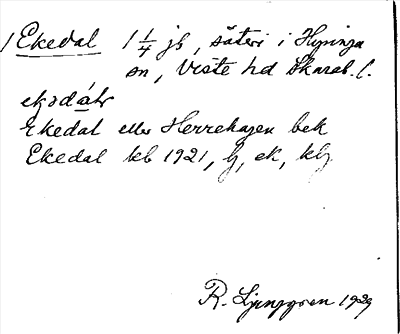 1 Ekedal 1 1/4 jb, säteri i Hyringa
sn, Viste hd Skarab. l.
Ekedal eller Herrehagen bek
Ekedal kb 1921, lj, ek, klg
R. Ljunggren 1929